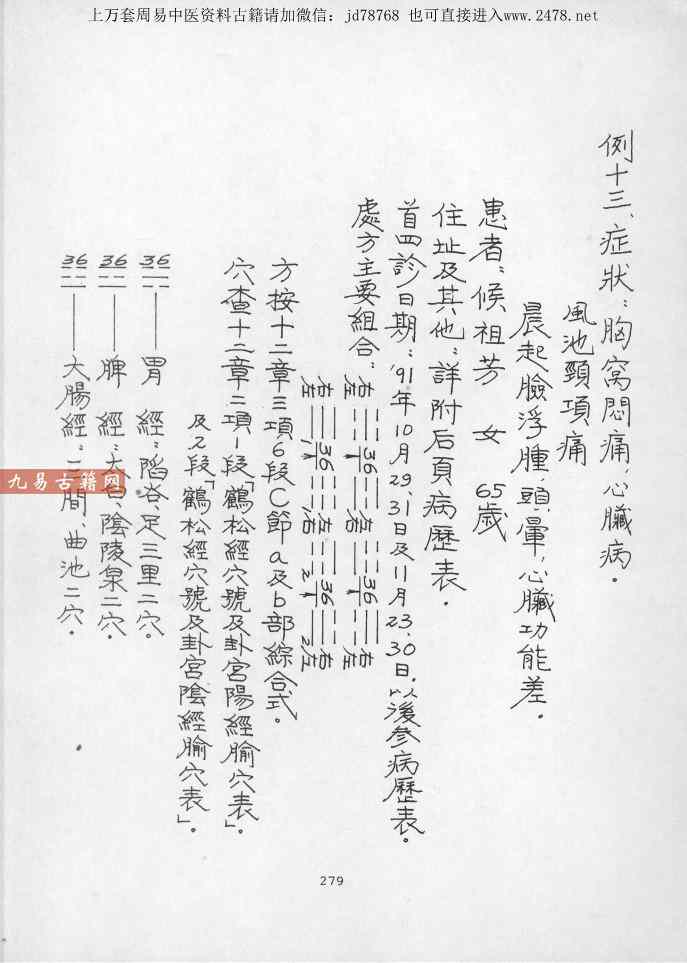 上万套周易中医资料古籍请加微信：jd78768 也可直接进入www.2478.net
例十三、症狀：胸窩悶痛，心臟病．
風池頸項痛
晨起臉浮腫，頭暈，心臟功能差．
患者：候祖芳 女 65歲
住址及其他：詳附后頁病歷表．
首四診日期：'91年10月29,31日及11月23,30日，以後參病歷表．
處方主要組合：
右 36 右 36 右
左 左
右 36 右 36 右
左 1 2 左
方按十二章三項6段C節a及b部綜合式。
穴查十二章二項1段「鶴松經穴號及卦宮陽經腧穴表」．
及2段「鶴松經穴號及卦宮陰經腧穴表」．
36 胃經：陷谷、足三里二穴．
36 脾經：太白、陰陵泉二穴．
36 大腸經：三間、曲池二穴．
九易古籍网
279